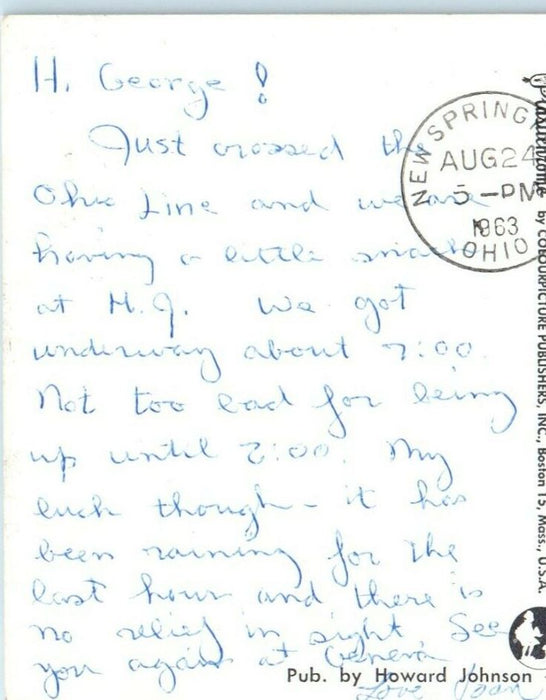 Hi George!
Just crossed the
Ohio Line and we are
having a little snack
at H.J. We got
underway about 7:00.
Not too bad for being
up until 2:00. My
luck though - it has
been raining for the
last hour and there is
no relief in sight See
you again at Geneva
Love
NEW SPRING
AUG 24
5 - PM
1963
OHIO
Plastichrome by COLOURPICTURE PUBLISHERS, INC., Boston 15, Mass., U.S.A.
Pub. by Howard Johnson